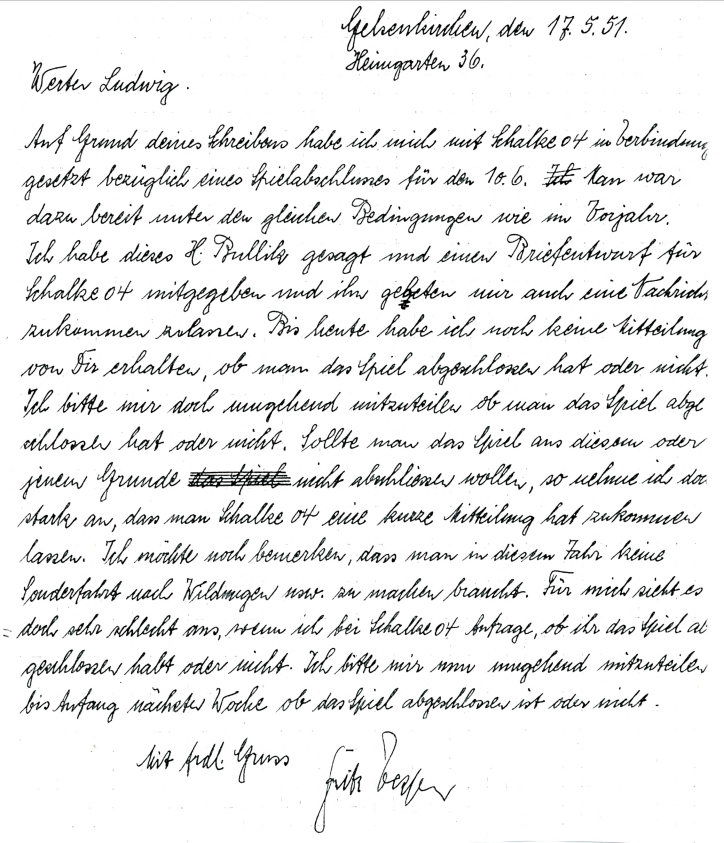 Gelsenkirchen, den 17.5.51.
Heimgarten 36.
Werter Ludwig.
Auf Grund deines Schreibens habe ich mich mit Schalke 04 in Verbindung
gesetzt bezüglich eines Spielabschlusses für den 10.6. Ich Man war
dazu bereit unter den gleichen Bedingungen wie im Vorjahr.
Ich habe dieses H. Bullik gesagt und einen Briefentwurf für
Schalke 04 mitgegeben und ihn gebeten mir auch eine Nachricht
zukommen zulassen. Bis heute habe ich noch keine Mitteilung
von Dir erhalten, ob man das Spiel abgeschlossen hat oder nicht.
Ich bitte mir doch umgehend mitzuteilen ob man das Spiel abge
schlossen hat oder nicht. Sollte man das Spiel aus diesem oder
jenem Grunde das Spiel nicht abschliessen wollen, so nehme ich doc
stark an, dass man Schalke 04 eine kurze Mitteilung hat zukommen
lassen. Ich möchte noch bemerken, dass man in diesem Jahr keine
Sonderfahrt nach Wildungen usw. zu machen braucht. Für mich sieht es
doch sehr schlecht aus, wenn ich bei Schalke 04 Anfrage, ob ihr das Spiel ab
geschlossen habt oder nicht. Ich bitte mir nun umgehend mitzuteilen
bis Anfang nächster Woche ob das Spiel abgeschlossen ist oder nicht.
Mit frdl. Gruss
Fritz